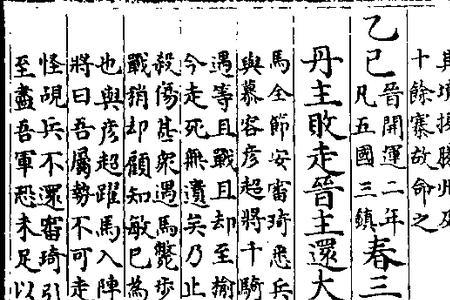 十餘寨故命之
乙巳晉開運二年
凡五國三鎮春三
丹主敗走晉主還大
馬全節安審琦悉兵
與慕容彥超將千騎
遇等且戰且却至榆
今走死無遺矣乃止
殺傷甚衆遇馬斃步
戰稍却顧知敏已為
也與彥超躍馬入陣
將曰吾屬勢不可走
怪覘兵不還審琦引
至盡吾軍恐未足以